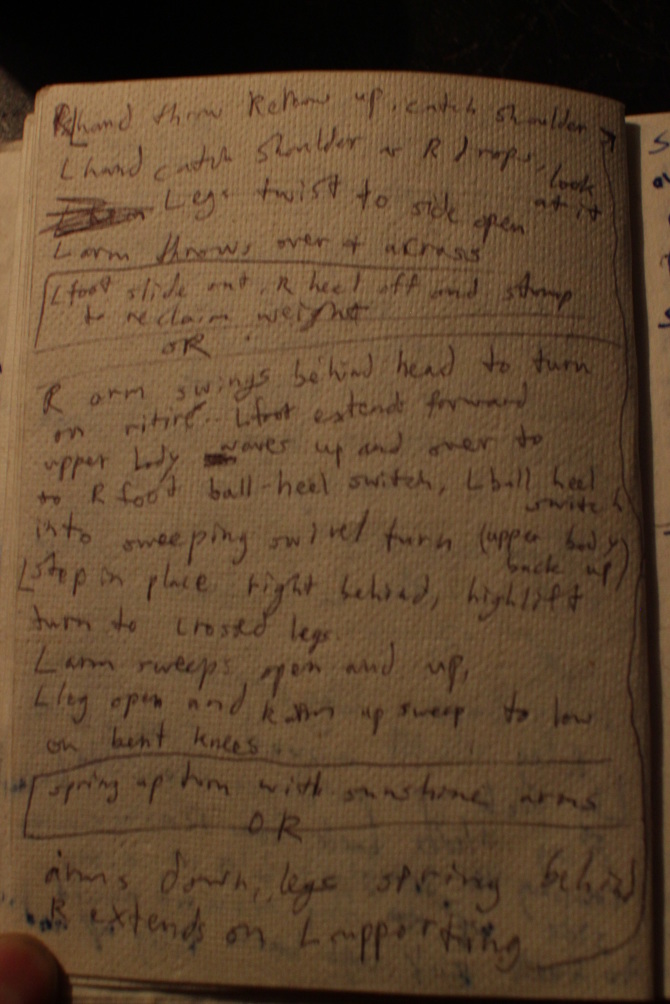 R hand throw R elbow up, catch shoulder
L hand catch shoulder as R drops, look
at it
Legs twist to side open
L arm throws over + across
L foot slide out, R heel off and stomp
to reclaim weight
OR
R arm swings behind head to turn
on retiré L foot extend forward
upper body waves up and over to
to R foot ball-heel switch, L ball heel
switch
into sweeping swivel turn (upper body
back up)
L step in place right behind, high lift
turn to crossed legs.
L arm sweeps open and up,
L leg open and R arm up sweep to low
on bent knees
spring up turn with sunshine arms
OR
arms down, legs spring behind
R extends on L supporting